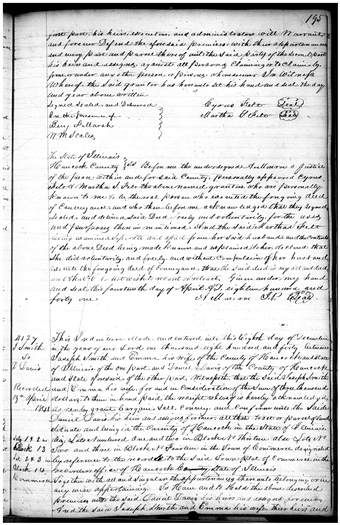 195
first part, his heirs, executors, and administrators will Warrant
and forever Defend the aforesaid premises with their appurtenances
and every part and parcel thereof unto the said party of the Second part
his heirs and assigns against all persons Claiming or to Claim by
from or under any other person or persons whomsoever In Witness
Whereof the said grantor has hereunto set his hand and seal the day
and year above written
Signed Sealed and Delivered
Cyrus Felt Seal
In the presence of
Martha Felt Seal
W M Scales
The State of Illinois
Hancock County Before me the undersigned a Justice
of the peace within and for said County, personally appeared Cyrus
Felt & Martha Felt the above named grantors who are personally
Known to me to be the real persons who executed the foregoing deed
of Conveyance and who then before me acknowledged that they signed
sealed and delivered said Deed freely and voluntarily for the uses
and purposes therein mentioned And the said Martha Felt
being examined separate and apart from her said husband and the contents
of the above Deed being made known and explained to her declared that
She did voluntarily and freely and without Compulsion of her husband
execute the foregoing deed of Conveyance
Given under my hand
and seal this fourteenth day of April A.D. eighteen hundred and
forty one
J.P. Seal
J Smith
to
D Davis
Recorded
April
1841
Lots 1 & 2 in
Block 13
Lots 2 & 3 in
Block 14
Commerce
This Indenture Made and entered into this Eighth day of December
in the year of our Lord one thousand eight hundred and forty between
Joseph Smith and Emma his wife of the County of Hancock and State
of Illinois of the one part and Daniel Davis of the County of Hancock
and State aforesaid of the other part, Witnesseth that the said Joseph Smith
and Emma his wife, for and in Consideration of the Sum of One thousand
dollars to them in hand paid the receipt whereof is hereby acknowledged
do hereby grant bargain Sell Convey and Confirm unto the said
Daniel Davis his heirs and assigns forever all that tract or parcel of land
situate and being in the County of Hancock in the State of Illinois
viz; Lots Numbered One and two in Block No Thirteen also Lots No
Two and three in Block No Fourteen in the Town of Commerce designated
by reference to the records of the said Town Plat of Commerce in the
Recorders office of Hancock County State of Illinois
Together with all and singular the appurtenances thereunto belonging or in
any wise appertaining To Have and to Hold the above described
premises unto the said Daniel Davis his heirs and assigns forever
And the said Joseph Smith and Emma his wife their heirs and